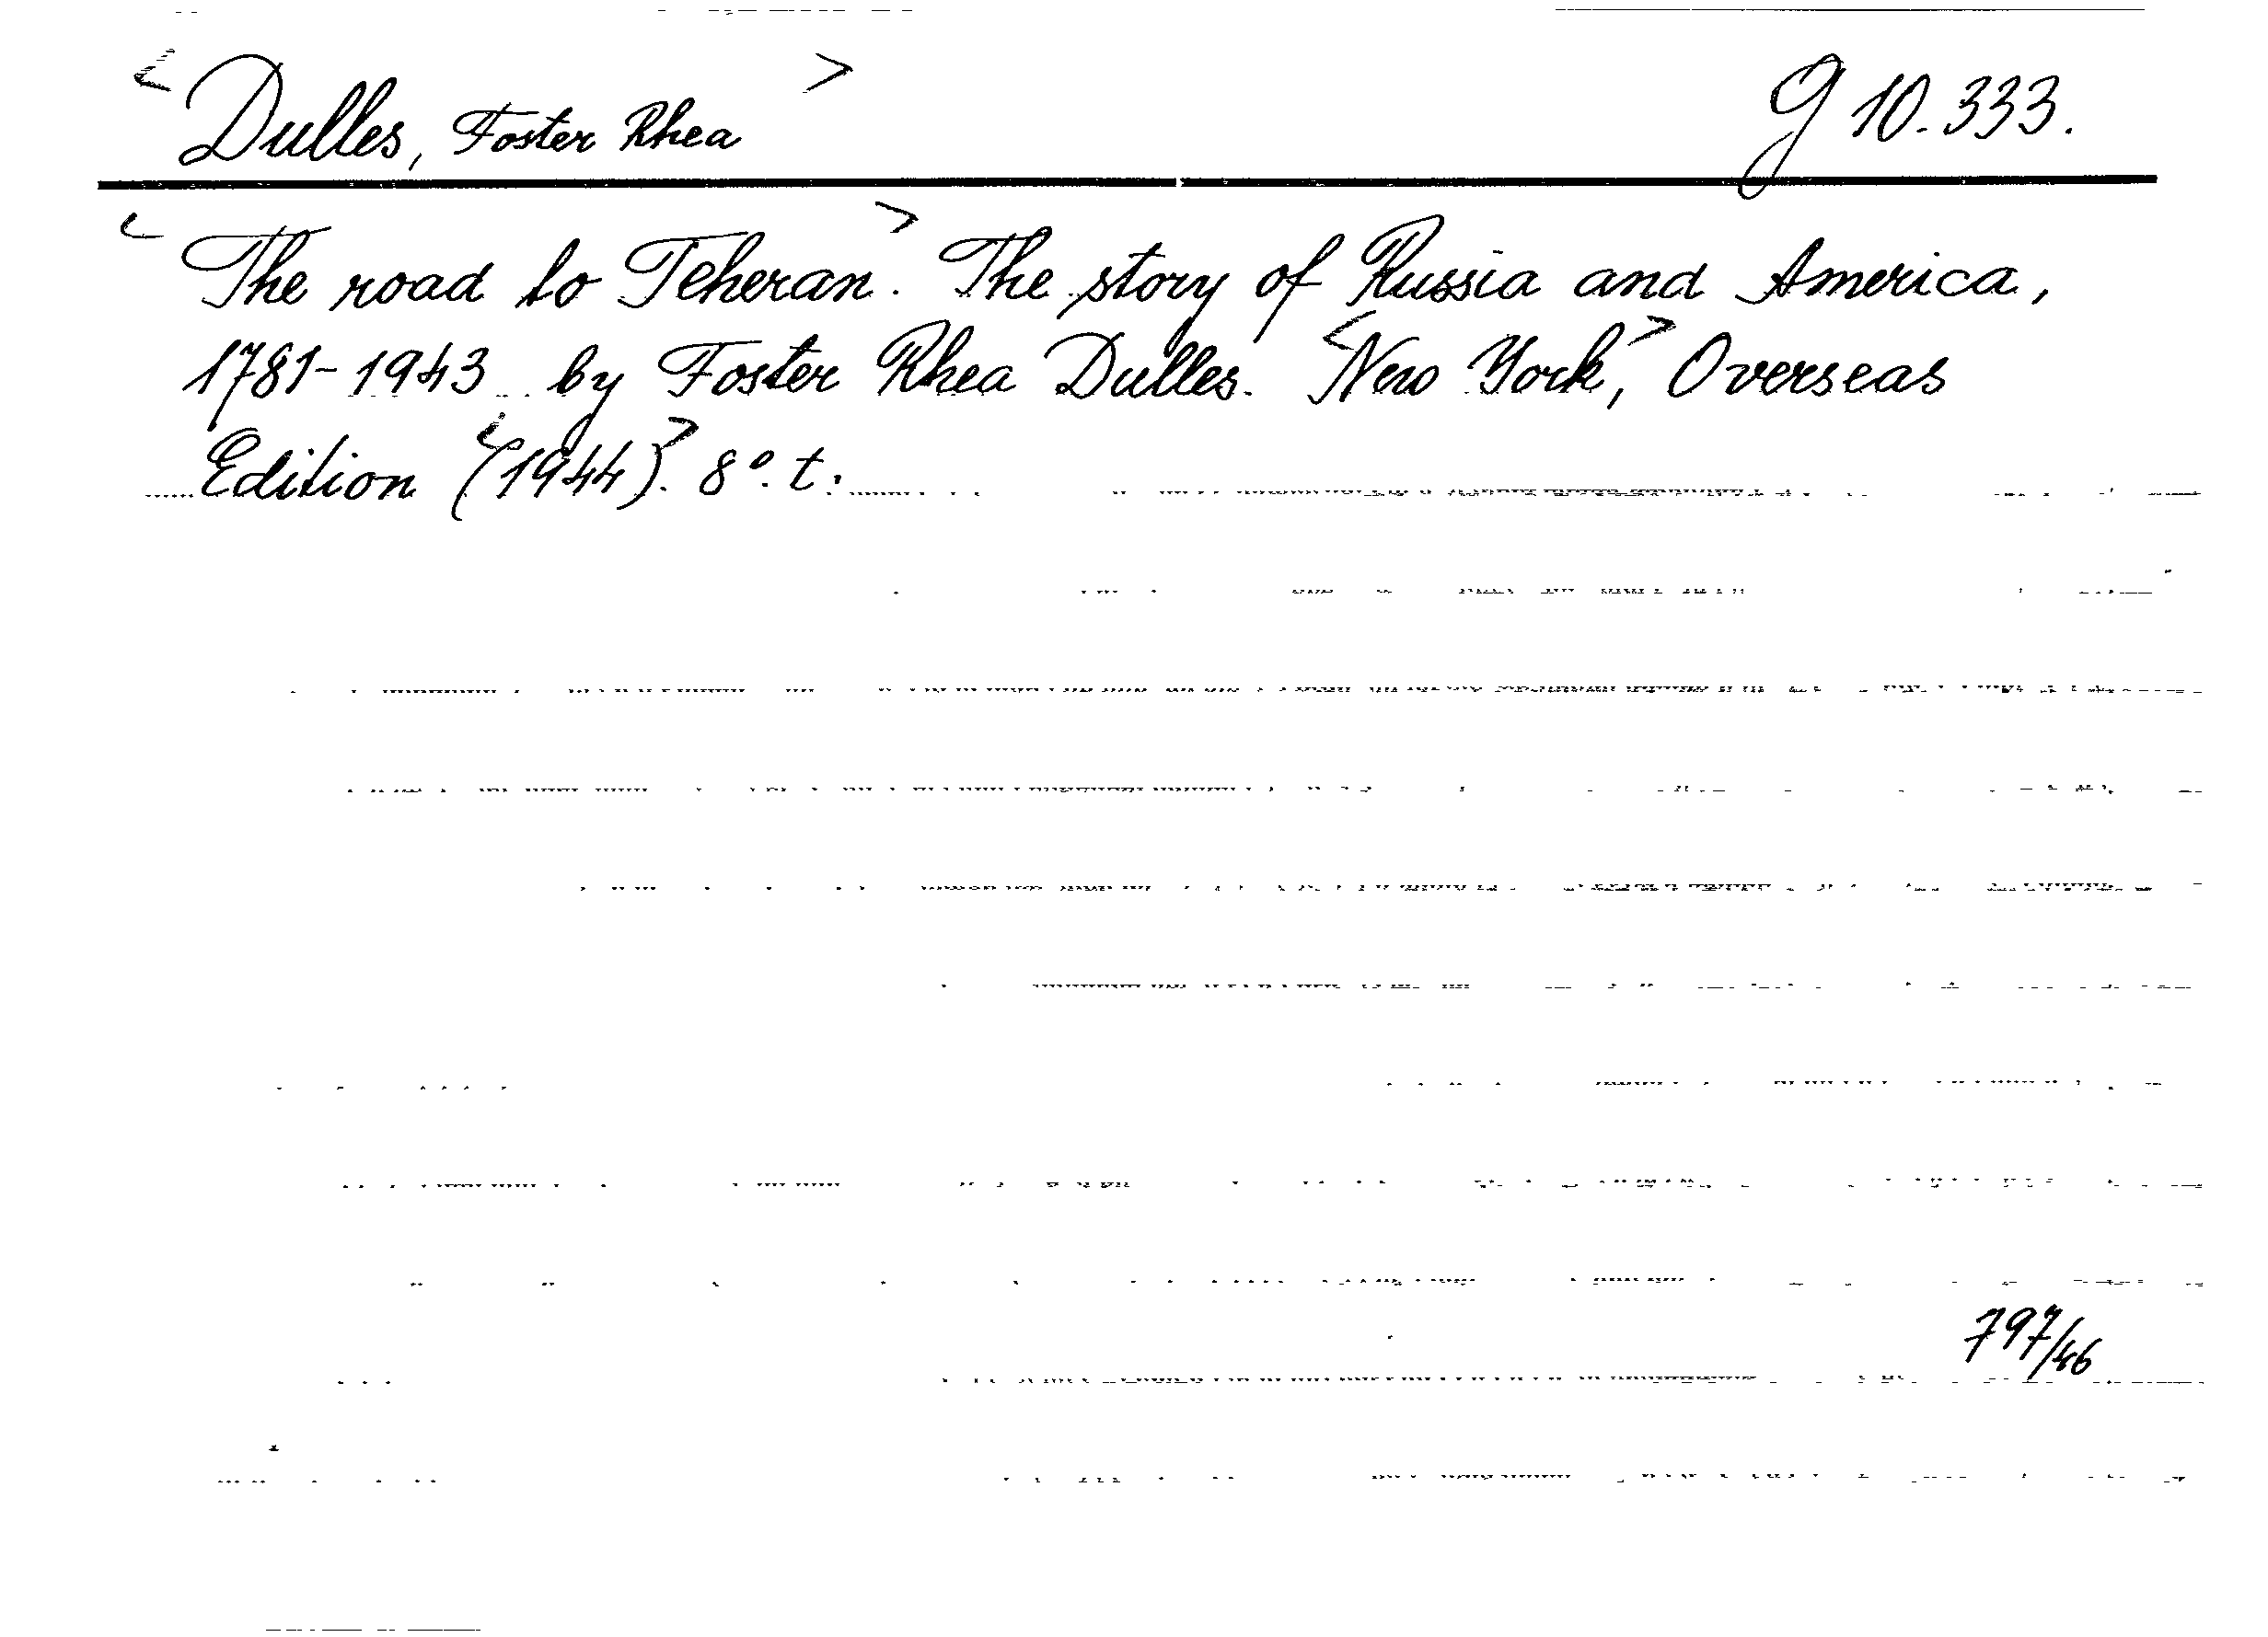 <Dulles, Foster Rhea> G 10.333.
<The road to Teheran>. The story of Russia and America,
1781-1943 by Foster Rhea Dulles. <New York>, Overseas
Edition <(1944)>. 8°. t.
797/46